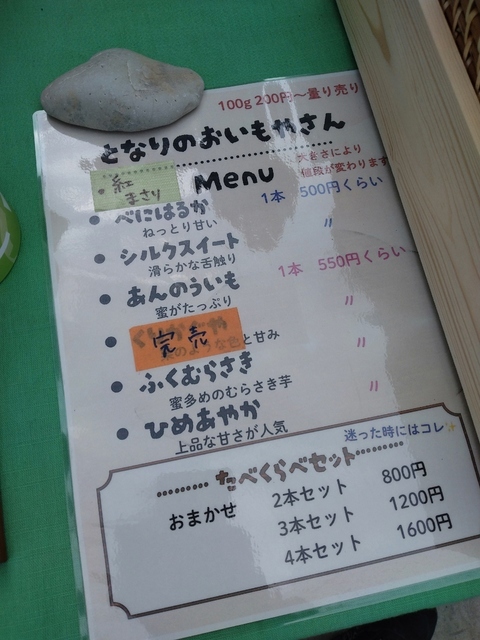 100g 200円～量り売り
となりのおいもやさん
大きさにより
値段が変わります
紅
まさり
Menu
1本 500円くらい
べにはるか
ねっとり甘い
〃
シルクスイート
滑らかな舌触り
1本 550円くらい
あんのういも
蜜がたっぷり
〃
完売
のような色と甘み
〃
ふくむらさき
蜜多めのむらさき芋
〃
ひめあやか
上品な甘さが人気
迷った時にはコレ
たべくらべセット
おまかせ 2本セット 800円
3本セット 1200円
4本セット 1600円